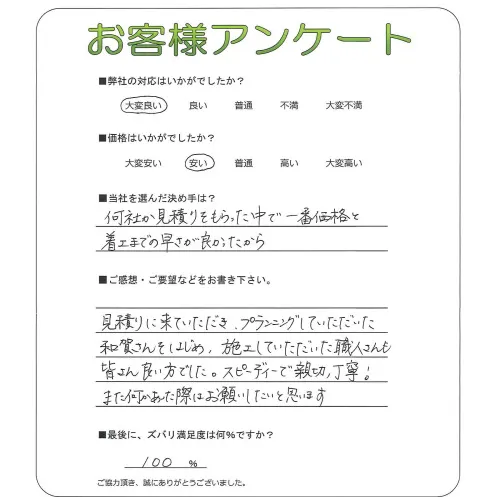 お客様アンケート
■弊社の対応はいかがでしたか？
大変良い　良い　普通　不満　大変不満
■価格はいかがでしたか？
大変安い　安い　普通　高い　大変高い
■当社を選んだ決め手は？
何社か見積りをもらった中で一番価格と
着工までの早さが良かったから
■ご感想・ご要望などをお書き下さい。
見積りに来ていただき、プランニングしていただいた
和賀さんをはじめ、施工していただいた職人さんも
皆さん良い方でした。スピーディーで親切、丁寧！
また何かあった際はお願いしたいと思います
■最後に、ズバリ満足度は何%ですか？
100 %
ご協力頂き、誠にありがとうございました。